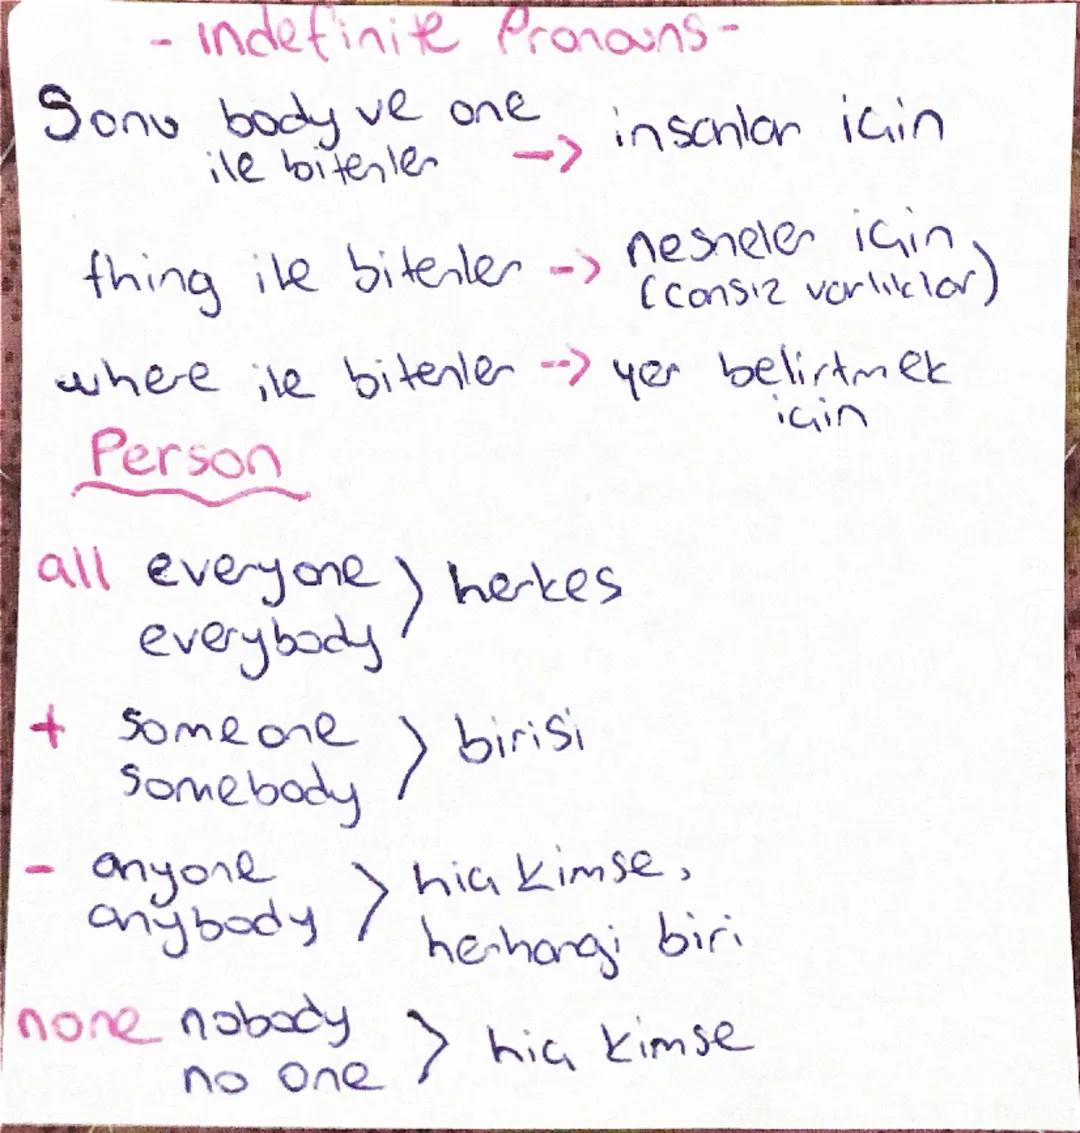 - Indefinite Pronouns -
Sonu body ve one
ile bitenler -> insanlar için
thing ile bitenler -> nesneler için
(cansız varlıklar)
where ile bitenler --> yer belirtmek
için
Person
all everyone
everybody } herkes
+ someone
somebody } birisi
- anyone
anybody } hiç kimse,
herhangi biri
none nobody
no one } hiç kimse